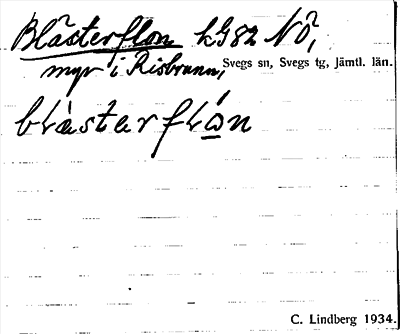 Blästerflon kG82 NÖ,
myr i Risbrunn, Svegs sn, Svegs tg, Jämtl. län.
C. Lindberg 1934.